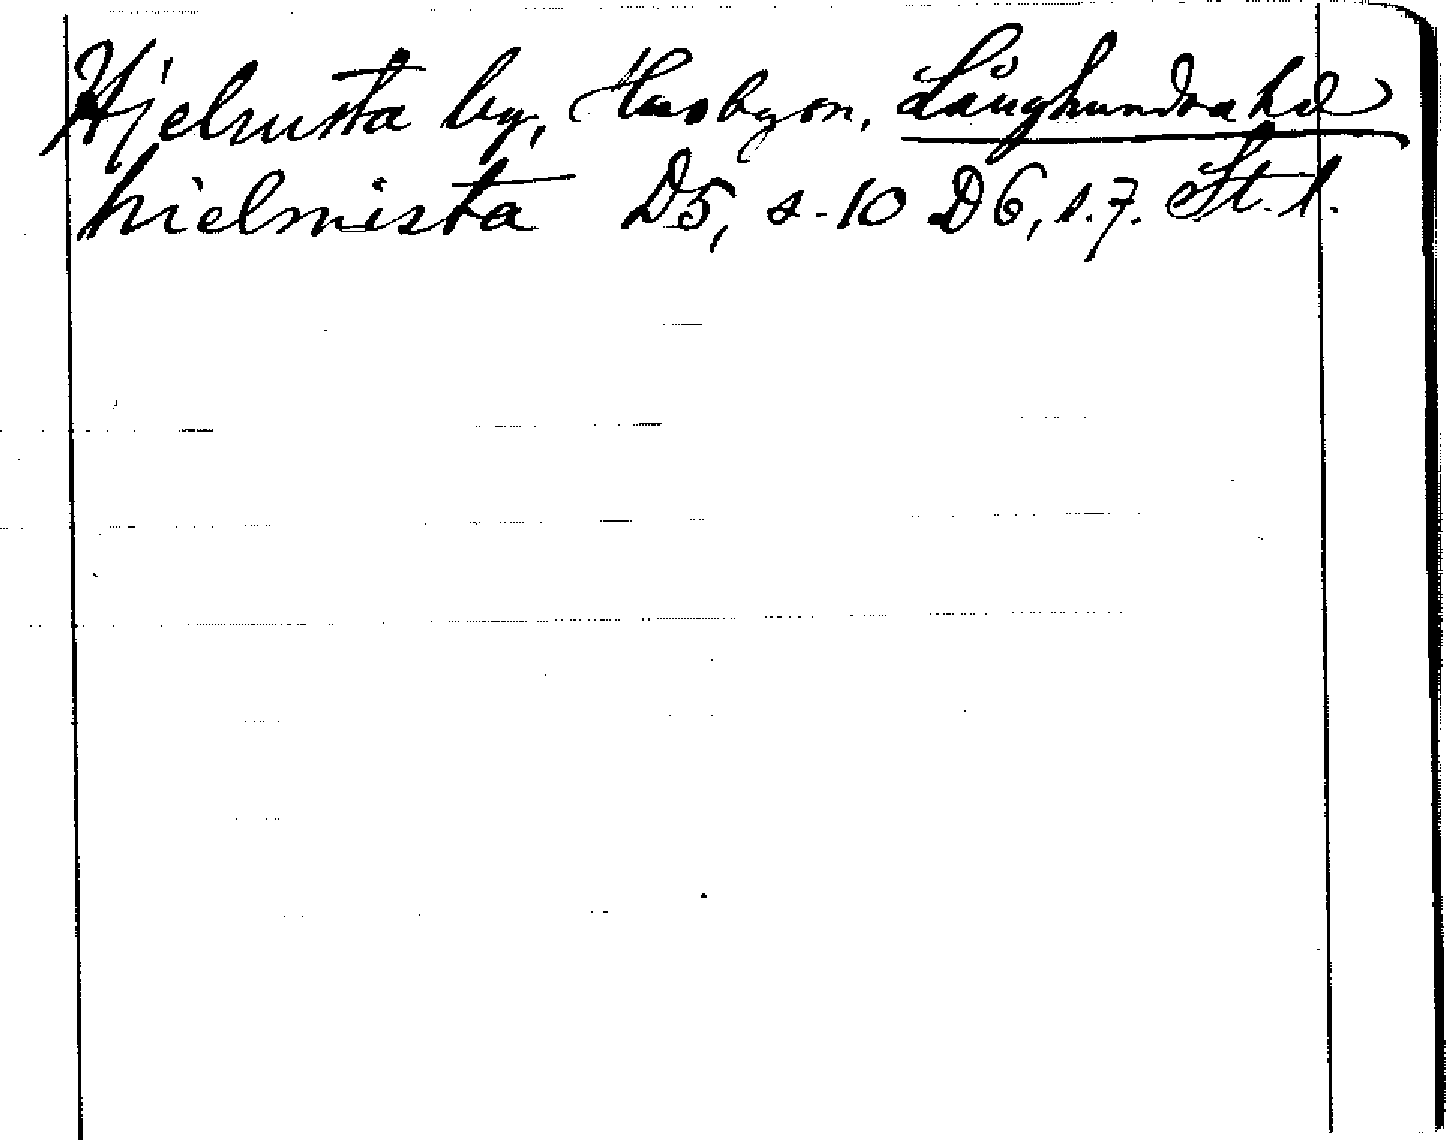 Hjelsusta by, Husbyön, Långhundra hd
hielmista D5, s. 10 D6, s. 7. St. l.